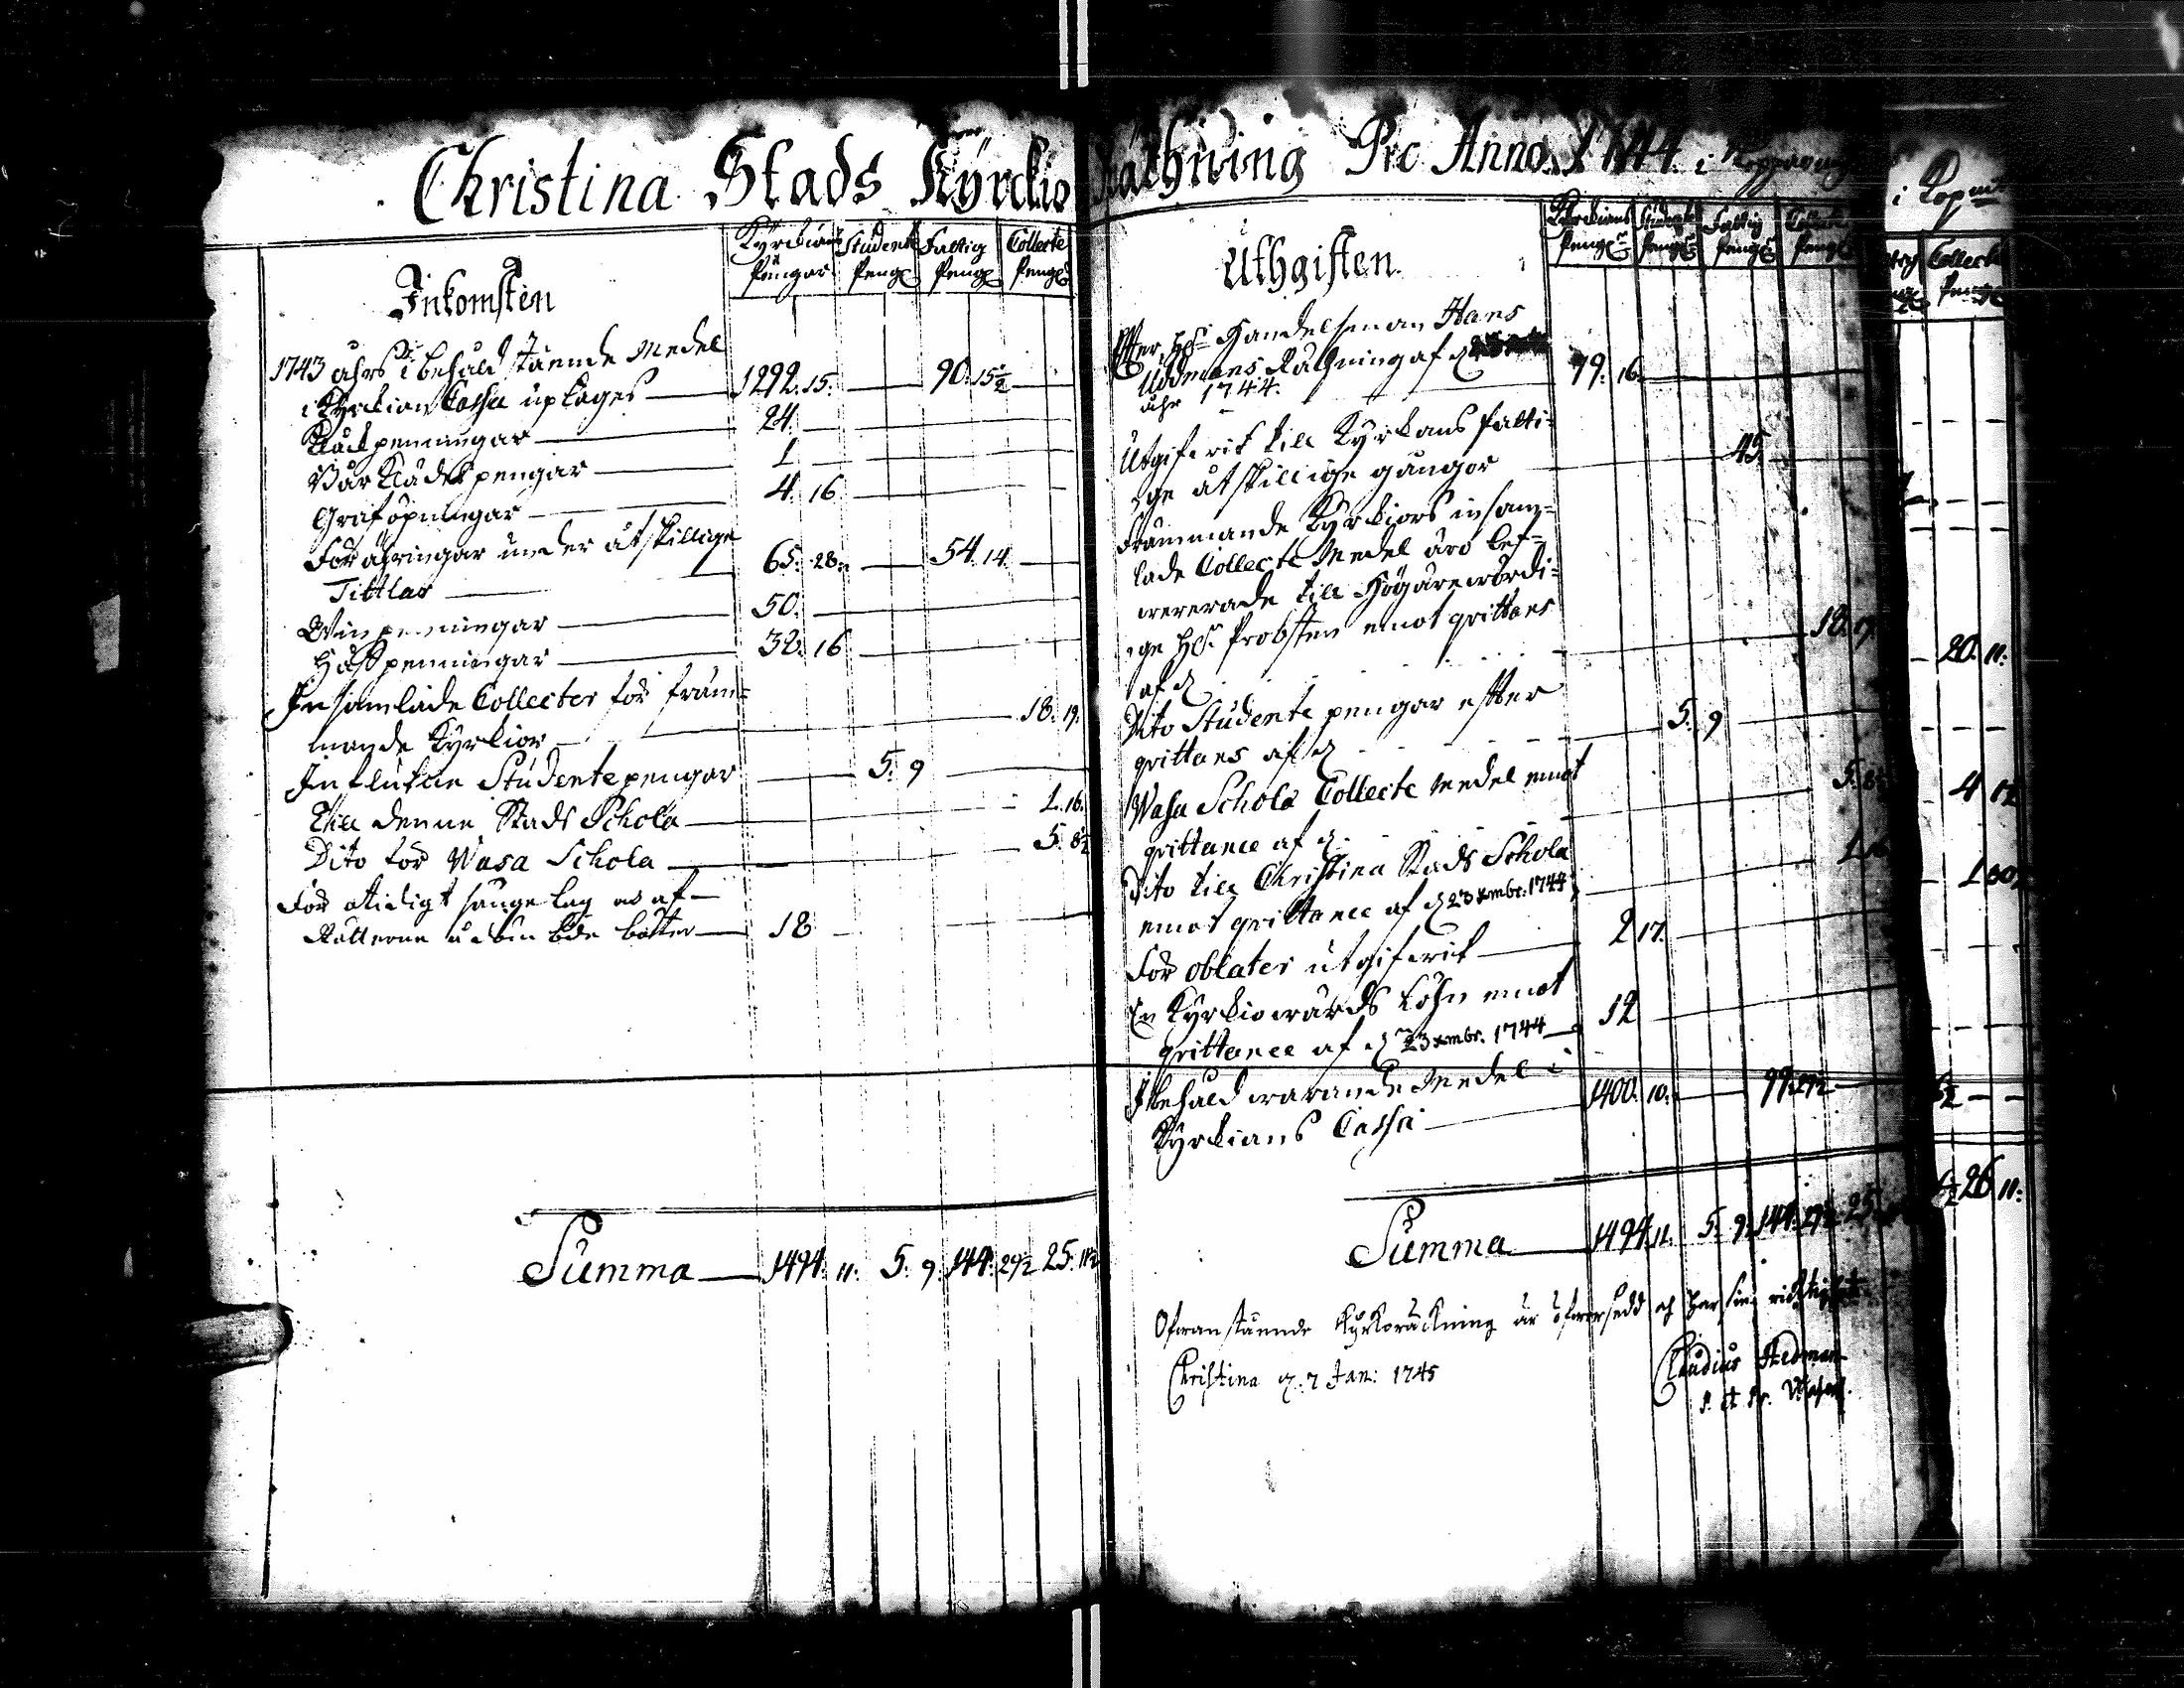 Christina Stads Kyrckio Räthning Pro Anno 1744. i Kopparmynt
Inkomsten
Kyrckians Pengar
Studente Peng
Fattig Peng
Collecte Peng
1743 åhrs i behåld stående Medel
i Kyrckians Cassa uptages — 1292. 15. — 90. 15½
Klåckpenningar — 24.
Bårklädespengar — 1
Graföpningar — 4. 16.
Föräringar under åtskillige
Tittlar — 65. 28. — 54. 14.
Winpenningar — 50.
Håfpenningar — 38. 16
Insamlade Collecter för främ=
mande Kyrckior — 18. 19.
Influtne Studentepengar — 5. 9
Till denne Stads Schola — 1. 16.
Dito för Wasa Schola — 5. 8½
För otidigt sänge lag
böter — 18
Summa — 1494. 11. 5. 9. 144. 29½ 25. 11½
Uthgiften
Kyrckians Peng
Studente Peng
Fattig Peng
Collecte Peng
Efter Hr Handelsman Hans
Uddmans Räkning af d
åhr 1744. — 79. 16.
Utgifvit till Kyrkans fatti=
ge åtskillige gångor — 45.
Främmande Kyrkiors insam=
lade Collecte Medel äro lef=
wererade till Högärewördi=
ge Hr Probsten emot qvittans
af d — 18. 19.
Dito Studente pengar efter
qvittans af d — 5. 9
Wasa Schola Collecte Medel emot
qvittance af d — 5. 8½
Dito till Christina Stads Schola
emot qvittance af d 23 xmbr. 1744
För oblater utgifvit — 2 17.
En Kyrkiowärds Löhn emot
qvittance af d 23 xmbr. 1744 — 12
I behåld warande Medel i
Kyrckians Cassa — 1400. 10. — 99. 29½
Summa — 1494. 11. 5. 9. 144. 29½ 25
Ofwanstående Kyrkoräckning är öfwersedd och har sin richtighet
Christina d. 7 Jan: 1745
Claudius Hedman
i Kopmt
Collecte
20. 11.
4 12
26 11.